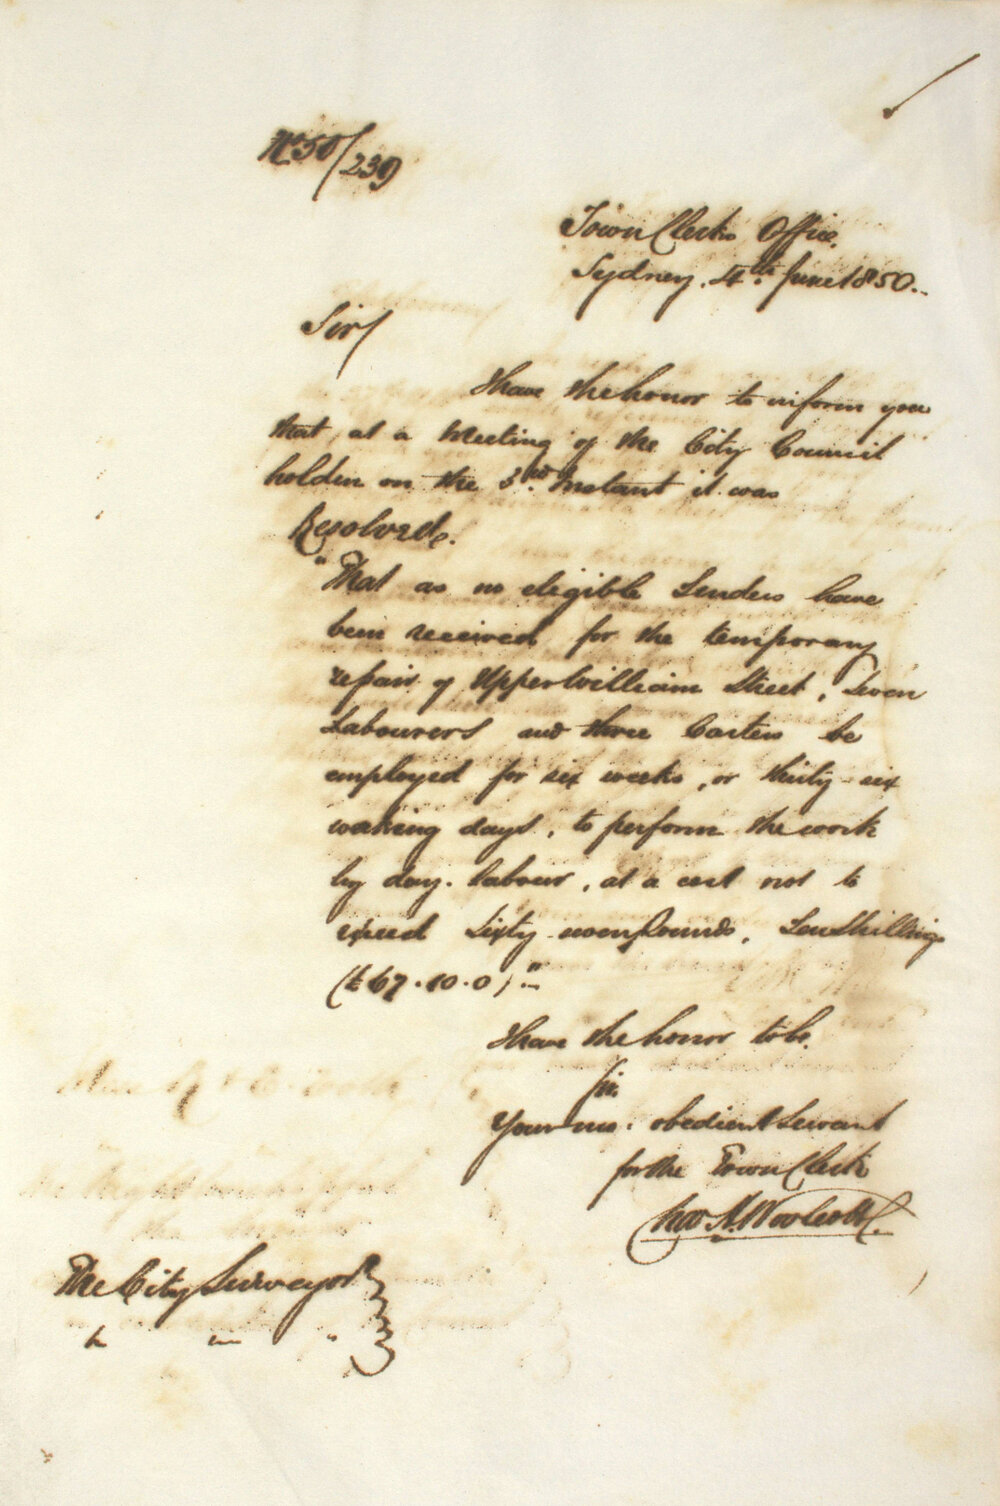 No 50/239
Town Clerks Office.
Sydney. 4th. June 1850.-
Sir/
I have the honor to inform you
that, at a Meeting of the City Council
holden on the 3rd. Instant it was
Resolved.
"That as no eligible Tenders have
been received for the temporary
repair of Upper William Street, Seven
Labourers and three Carters be
employed for six weeks, or thirty-six
working days, to perform the work
by day. labour, at a cost not to
exceed Sixty-seven Pounds, Ten Shillings
(£67.10.0)."-
I have the honor to be.
Sir.
Your mo. obedient Servant
for the Town Clerk
Chas H. Woolcott.
The City Surveyor